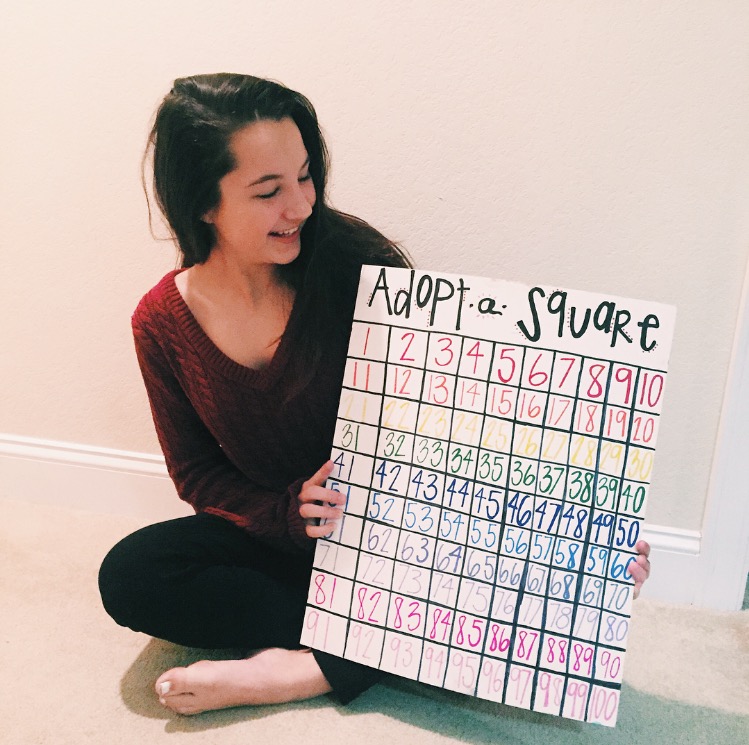 Adopt·a· Square
1 2 3 4 5 6 7 8 9 10
11 12 13 14 15 16 17 18 19 20
21 22 23 24 25 26 27 28 29 30
31 32 33 34 35 36 37 38 39 40
41 42 43 44 45 46 47 48 49 50
51 52 53 54 55 56 57 58 59 60
62 63 64 65 66 67 68 69 70
72 73 74 75 76 77 78 79 80
81 82 83 84 85 86 87 88 89 90
91 92 93 94 95 96 97 98 99 100